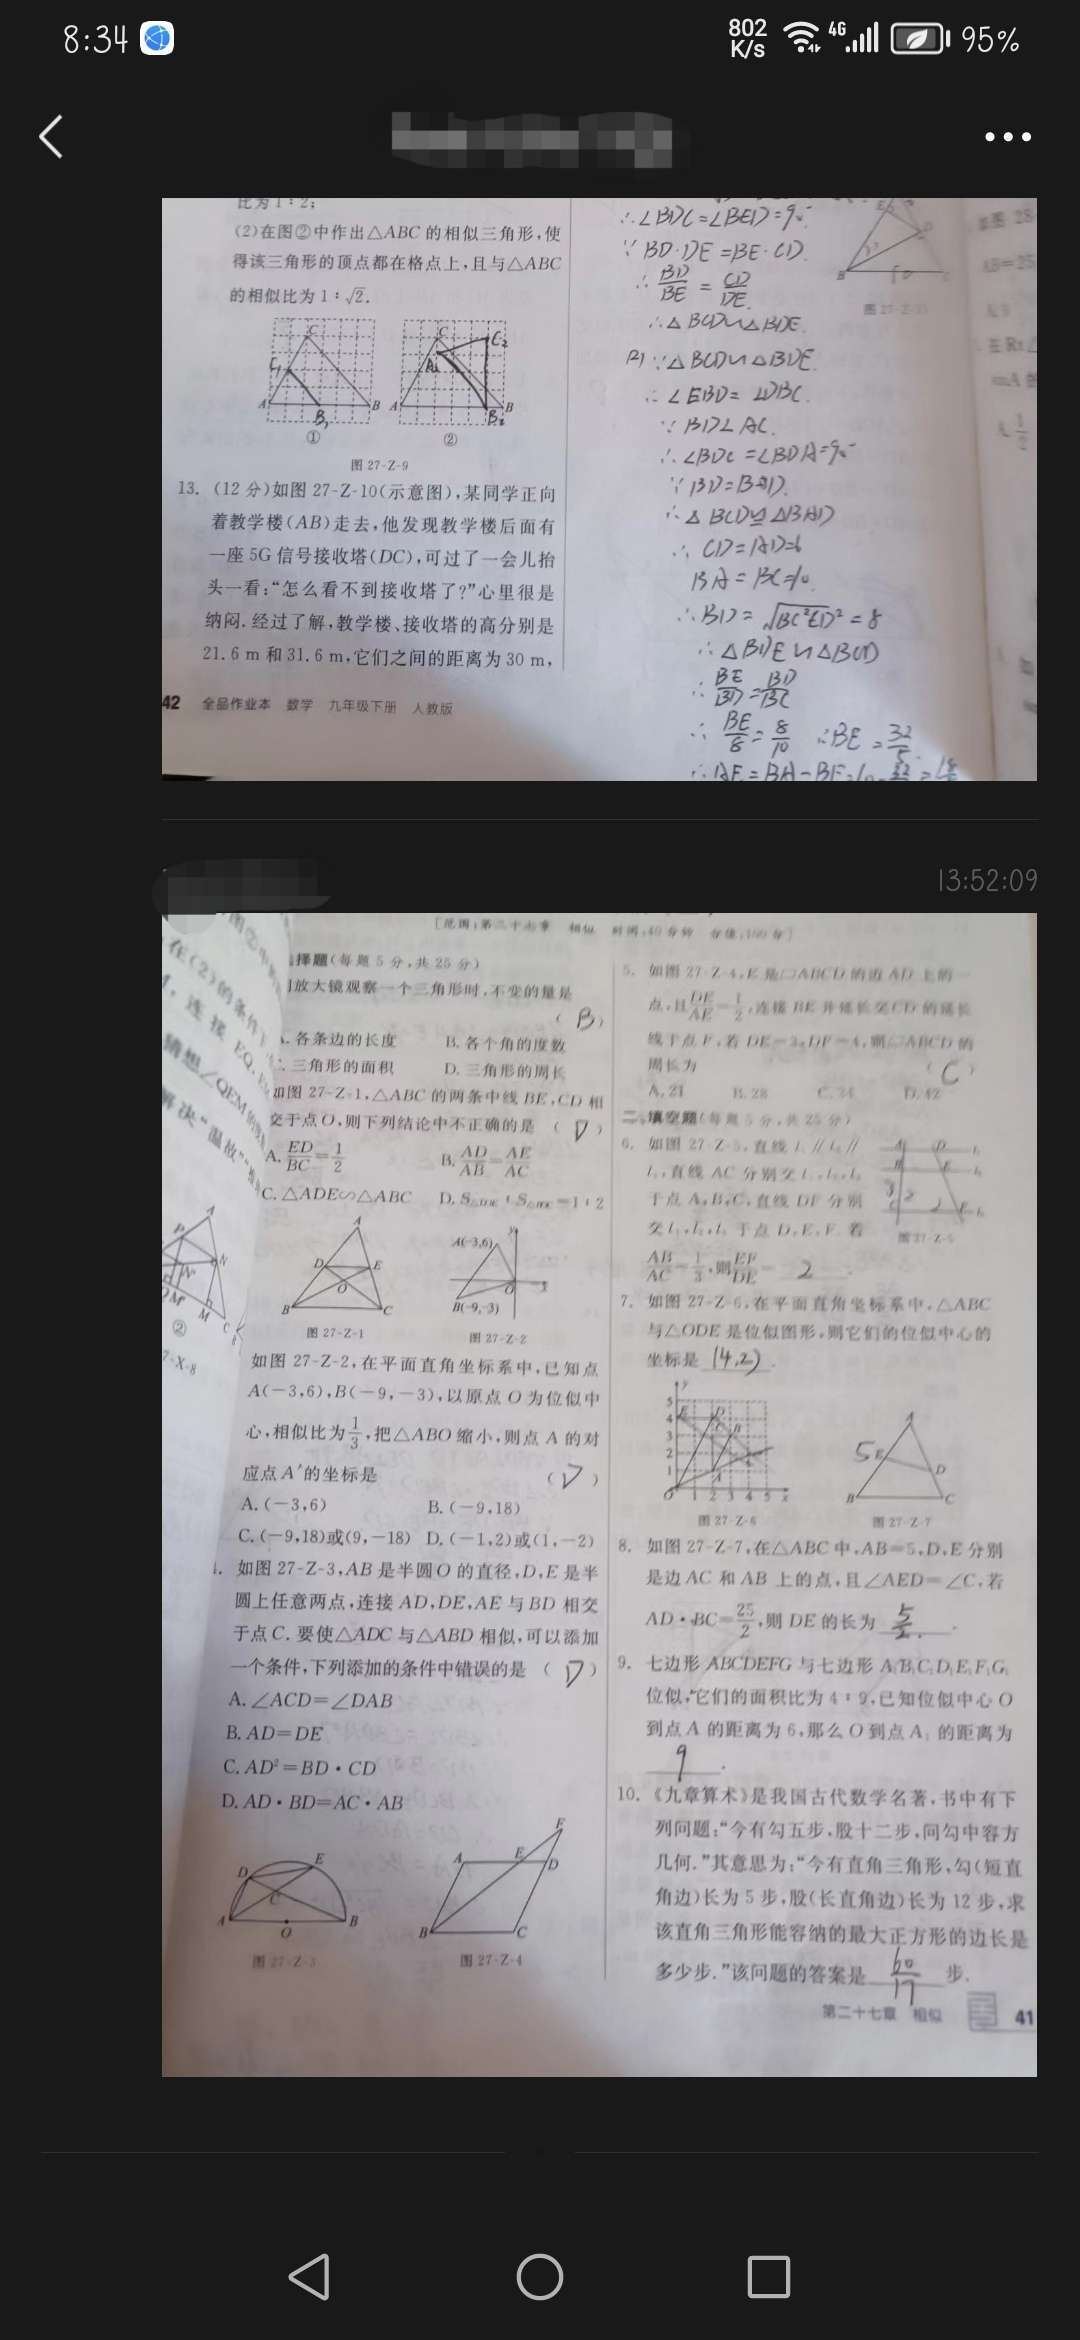 8:34
802 K/s
4G
95%
比为1:2;
(2)在图②中作出△ABC的相似三角形,使
得该三角形的顶点都在格点上,且与△ABC
的相似比为1:√2.
C
C₁
A
B₁
B
①
C
C₂
A₂
A
B
B₂
②
图 27-Z-9
13. (12分)如图27-Z-10(示意图),某同学正向
着教学楼(AB)走去,他发现教学楼后面有
一座5G信号接收塔(DC),可过了一会儿抬
头一看:“怎么看不到接收塔了?”心里很是
纳闷.经过了解,教学楼、接收塔的高分别是
21.6 m和31.6 m,它们之间的距离为30 m,
42 全品作业本 数学 九年级下册 人教版
∴∠BDC=∠BED=90°
∵BD·DE=BE·CD.
∴BD/BE=CD/DE.
∴△BCD∽△BDE.
(2)∵△BCD∽△BDE.
∴∠EBD=∠DBC.
∵BD⊥AC.
∴∠BDC=∠BDA=90°
∵BD=BD.
∴△BCD≌△BAD
∴CD=AD=6
BA=BC=10.
∴△BDE∽△BCD
∴BE/BD=BD/BC
∴BE/8=8/10 ∴BE=32/5.
13:52:09
[范围:第二十七章 相似 时间:40分钟 分值:100分]
择题(每题5分,共25分)
放大镜观察一个三角形时,不变的量是
( B )
各条边的长度 B. 各个角的度数
三角形的面积 D. 三角形的周长
如图27-Z-1,△ABC的两条中线BE,CD相
交于点O,则下列结论中不正确的是 ( D )
A. ED/BC=1/2 B. AD/AB=AE/AC
C. △ADE∽△ABC D. S△DOE:S△BOC=1:2
A
D
E
O
B
C
图 27-Z-1
A(-3,6)
y
O
x
B(-9,-3)
图 27-Z-2
如图27-Z-2,在平面直角坐标系中,已知点
A(-3,6),B(-9,-3),以原点O为位似中
心,相似比为1/3,把△ABO缩小,则点A的对
应点A′的坐标是 ( D )
A. (-3,6) B. (-9,18)
C. (-9,18)或(9,-18) D. (-1,2)或(1,-2)
如图27-Z-3,AB是半圆O的直径,D,E是半
圆上任意两点,连接AD,DE,AE与BD相交
于点C.要使△ADC与△ABD相似,可以添加
一个条件,下列添加的条件中错误的是 ( D )
A. ∠ACD=∠DAB
B. AD=DE
C. AD²=BD·CD
D. AD·BD=AC·AB
D
E
C
A
O
B
图 27-Z-3
F
A
E
D
B
C
图 27-Z-4
5. 如图27-Z-4,E是▱ABCD的边AD上的一
点,且DE/AE=1/2,连接BE并延长交CD的延长
线于点F,若DE=3,DF=4,则▱ABCD的
周长为 ( C )
A. 21 B. 28 C. 34 D. 42
二、填空题(每题5分,共25分)
6. 如图27-Z-5,直线l₁∥l₂∥
l₃,直线AC分别交l₁,l₂,l₃
于点A,B,C,直线DF分别
交l₁,l₂,l₃于点D,E,F.若
AB/AC=1/3,则EF/DE= 2 .
图 27-Z-5
7. 如图27-Z-6,在平面直角坐标系中,△ABC
与△ODE是位似图形,则它们的位似中心的
坐标是 (4,2) .
图 27-Z-6
5
A
E
D
B
C
图 27-Z-7
8. 如图27-Z-7,在△ABC中,AB=5,D,E分别
是边AC和AB上的点,且∠AED=∠C,若
AD·BC=25/2,则DE的长为 5/2 .
9. 七边形ABCDEFG与七边形A₁B₁C₁D₁E₁F₁G₁
位似,它们的面积比为4:9,已知位似中心O
到点A的距离为6,那么O到点A₁的距离为
9 .
10. 《九章算术》是我国古代数学名著,书中有下
列问题:“今有勾五步,股十二步,问勾中容方
几何.”其意思为:“今有直角三角形,勾(短直
角边)长为5步,股(长直角边)长为12步,求
该直角三角形能容纳的最大正方形的边长是
多少步.”该问题的答案是 60/17 步.
第二十七章 相似 41